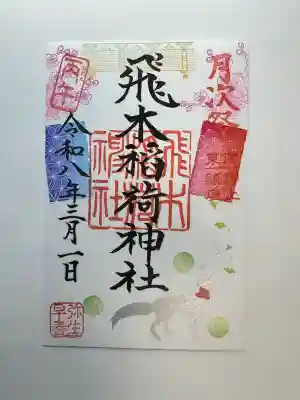 月次祭
飛木稲荷神社
飛木稲荷神社
令和八年三月一日
弥生
早春